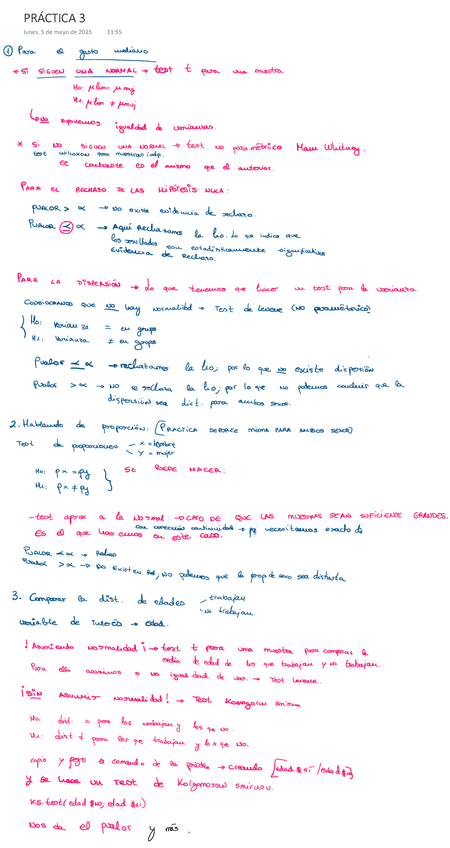 PRÁCTICA 3
lunes, 5 de mayo de 2025 11:55
① Para el gasto mediano
* Si SIGUEN UNA NORMAL → test t para una muestra
Ho: μ hom = μ muj
H1: μ hom ≠ μ muj
↳ No suponemos igualdad de varianzas.
* Si no SIGUEN UNA NORMAL → test no paramétrico Mann Whitney.
test wilcoxon para muestras indp.
El contraste es el mismo que el anterior.
PARA EL RECHAZO DE LAS HIPÓTESIS NULA:
pvalor > α → No existe evidencia de rechazo.
Pvalor ≤ α → Aquí Rechazamos la ho. lo que indica que
los resultados son estadísticamente significativos
Evidencia de Rechazo.
PARA LA DISPERSIÓN → lo que tenemos que hacer un test para la varianza.
CONSIDERANDO QUE NO hay normalidad → Test de Levene (NO paramétrico)
Ho: varianza = en grupos
H1: Varianza ≠ en grupos
Pvalor ≤ α → rechazamos la ho, por lo que no existe dispersión
Pvalor > α → NO se rechaza la ho, por lo que no podemos concluir que la
dispersión sea dist. para ambos sexos.
2. Hablando de proporción: (PRACTICA DEPORTE MISMA PARA AMBOS SEXOS)
Test de proporciones x = hombre
y = mujer
Ho: px = py
H1: px ≠ py
SE PUEDE HACER:
- test aprox a la Normal → CASO DE QUE LAS MUESTRAS SEAN SUFICIENTE GRANDES.
con corrección continuidad → pq necesitamos exacto de
ES el que hacemos en este caso.
Pvalor < α → Rechazo
Pvalor > α → No existe ev. Rd, no podemos que la prop de sexo sea distinta
3. Comparar la dist. de edades trabajan
no trabajan.
variable de interés → edad.
! Asumiendo normalidad ! → test t para una muestra para comparar la
media de edad de los que trabajan y no trabajan.
Para ello asumimos o no igualdad de var. → Test Levene.
¡ SIN ASUMIR normalidad! → Test Kolmogorov Smirnov
Ho: dist. = para los trabajan y los que no.
H1: dist ≠ para los que trabajan y los que no.
copio y pego el comando de la práctica → creando [edad $ si / edad $ no]
y se hace un Test de Kolgomorov smirnov.
KS.test(edad $no, edad $si)
Nos da el pvalor y más.